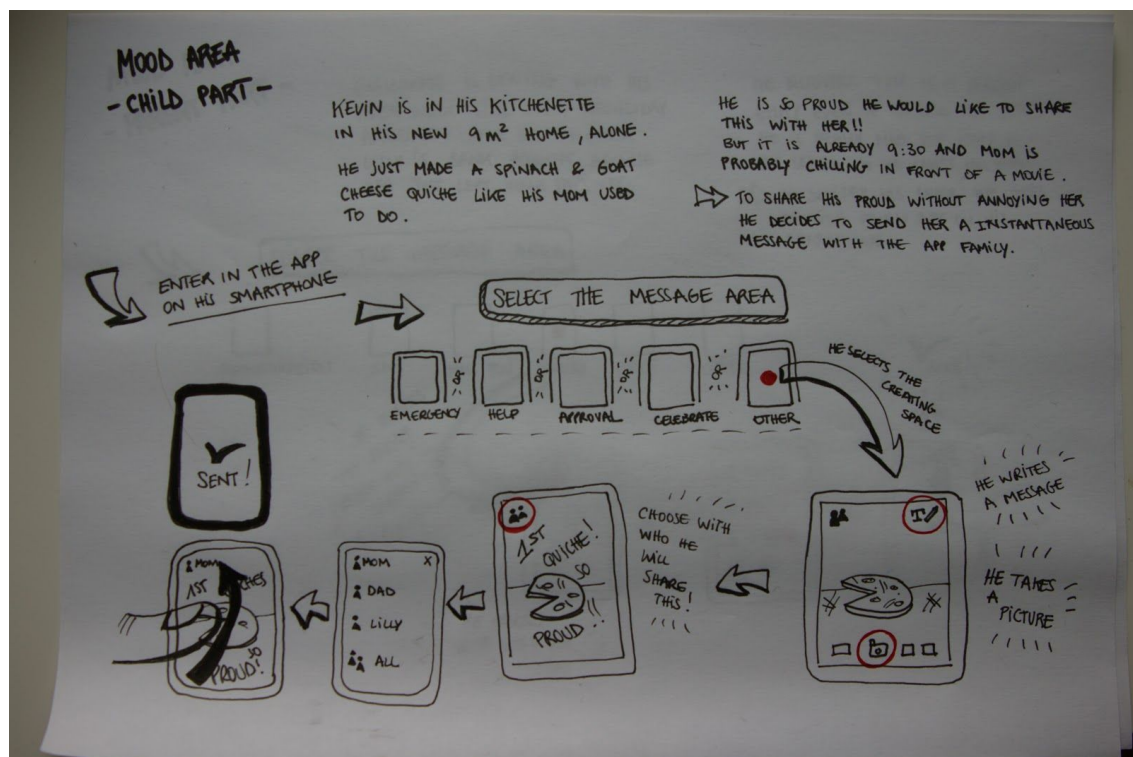 MOOD AREA
- CHILD PART -
KEVIN IS IN HIS KITCHENETTE
IN HIS NEW 9 m² HOME, ALONE.
HE JUST MADE A SPINACH & GOAT
CHEESE QUICHE LIKE HIS MOM USED
TO DO.
HE IS SO PROUD HE WOULD LIKE TO SHARE
THIS WITH HER!!
BUT IT IS ALREADY 9:30 AND MOM IS
PROBABLY CHILLING IN FRONT OF A MOVIE.
TO SHARE HIS PROUD WITHOUT ANNOYING HER
HE DECIDES TO SEND HER A INSTANTANEOUS
MESSAGE WITH THE APP FAMILY.
ENTER IN THE APP
ON HIS SMARTPHONE
SELECT THE MESSAGE AREA
OR OR OR OR
EMERGENCY HELP APPROVAL CELEBRATE OTHER
HE SELECTS THE
CREATING
SPACE
HE WRITES
A MESSAGE
HE TAKES
A
PICTURE
T
CHOOSE WITH
WHO HE
WILL
SHARE
THIS!
1ST
QUICHE!
SO
PROUD!!
MOM X
DAD
LILLY
ALL
MOM
1ST
SO
PROUD!
SENT!